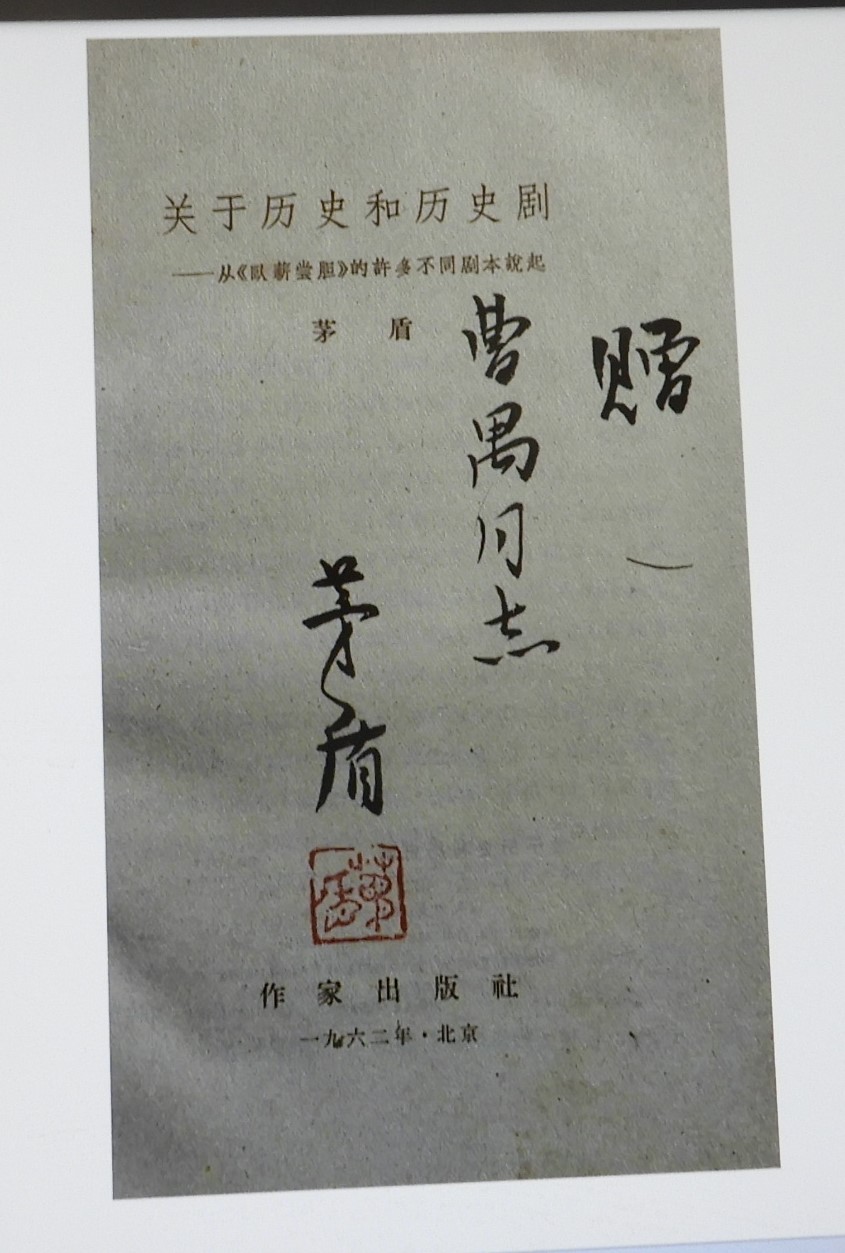 关于历史和历史剧
——从《臥薪尝胆》的許多不同剧本說起
茅盾
赠
曹禺同志
茅盾
茅盾
作家出版社
一九六二年·北京